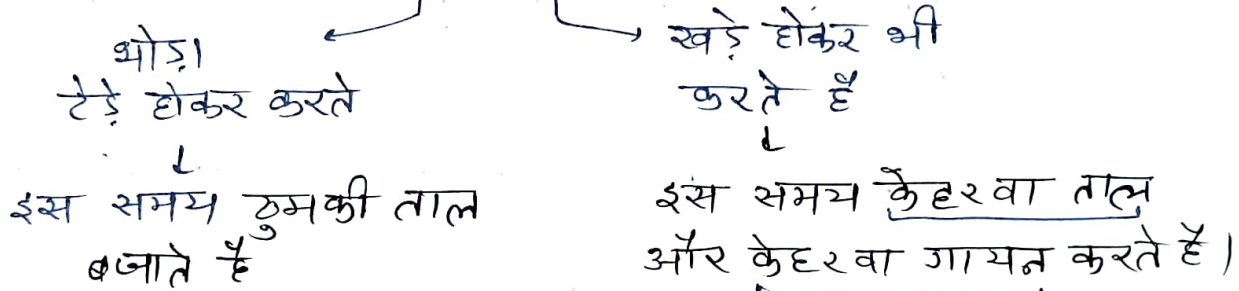 थोड़ा
टेड़े होकर करते
इस समय ठुमकी ताल
बजाते है
खड़े होकर भी
करते है
इस समय केहरवा ताल
और केहरवा गायन करते है।